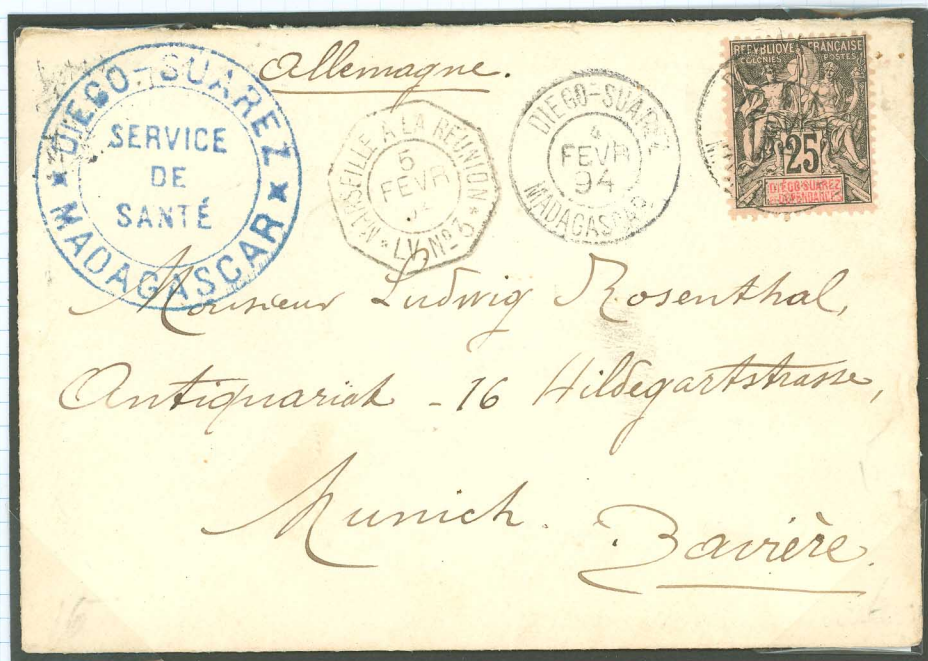 Allemagne.
DIEGO-SUAREZ
SERVICE
DE
SANTÉ
MADAGASCAR
MARSEILLE A LA RÉUNION
5
FEVR
LV. Nº 3
DIEGO-SUAREZ
4
FEVR
94
MADAGASCAR
REPUBLIQUE FRANÇAISE
COLONIES POSTES
25
DIEGO-SUAREZ
Monsieur Ludwig Rosenthal,
Antiquariat - 16 Hildegartstrasse,
Munich.
Bavière.